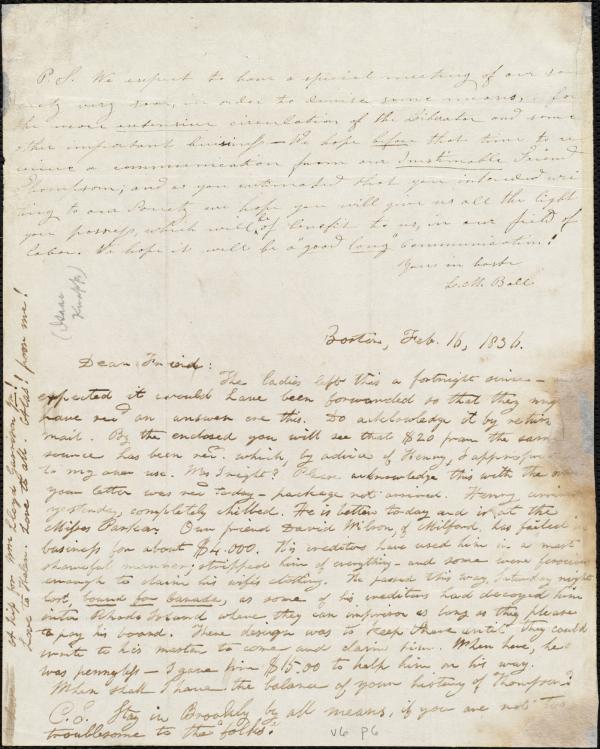 P. S. We expect to have a special meeting of our so-
ciety very soon, in order to devise some means, for
the more extensive circulation of the Liberator and some
other important business — We hope before that time to re-
ceive a communication from our inestimable Friend
Thompson; and as you intimated that you intended wri-
ting to our Society we hope you will give us all the light
you possess, which will be of benefit to us, in our field of
labor. We hope it will be a "good long" communication!
Yours in haste
L. M. Ball
(Isaac
Knapp)
Boston, Feb. 16, 1836.
Dear Friend:
The ladies left this a fortnight since —
expected it would have been forwarded so that they may
have recd an answer ere this. Do acknowledge it by return
mail. By the enclosed you will see that $20 from the same
source has been recd. which, by advice of Henry, I appropri
to my own use. Was I right? Please acknowledge this with the
your letter was recd today — package not arrived. Henry
yesterday completely chilled. He is better today and is at the
Misses Parker. Our friend David Wilson, of Milford, has failed in
business for about $4.000. His creditors have used him in a most
shameful manner; stripped him of everything — and some were ferocious
enough to claim his wife's clothing. He passed this way, Saturday night
last, bound for Canada, as some of his creditors had decoyed him
into Rhode Island where they can imprison as long as they please
to pay his board. There design was to keep there until they could
write to his master to come and claim him. When here, he
was pennyless — I gave him $15.00 to help him on his way.
When shall I have the balance of your history of Thompson?
C. S. Stay in Brooklyn by all means, if you are not too
troublesome to the folks.
v6 p6
A kiss for Wm Lloyd Garrison Jr!
Love to Helen. Love to all. from me!